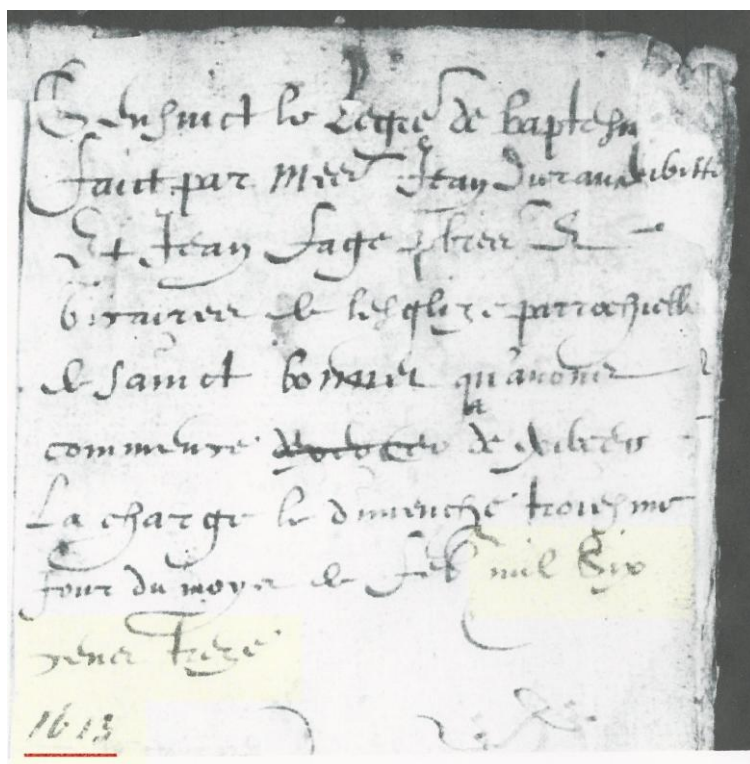 Sensuict le Regre de baptesm
faict par Mrer Jean Durand
Et Jean fage pbrer &
vicairer de lesglize parrochielle
de sainct bonner qu'avoner
commence a de
La charge le dimenche troiesme
Jour du moys de feb mil six
cener treze
1613